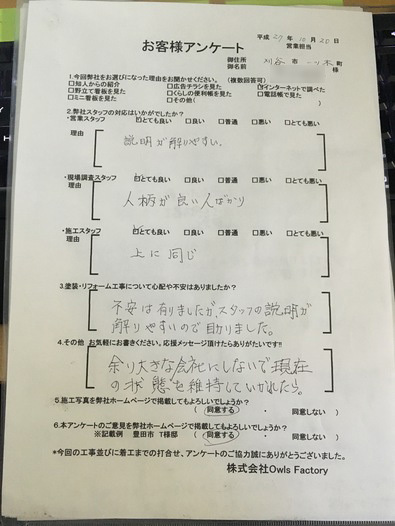 お客様アンケート
平成 27 年 10 月 20 日
営業担当
御住所 刈谷 市 一ツ木 町
御名前 様
1.今回弊社をお選びになった理由をお聞かせください。(複数回答可)
□知人からの紹介 □広告チラシを見た ☑インターネットで調べた
□野立て看板を見た □くらしの便利帳を見た □電話帳で見た
□ミニ看板を見た □その他( )
2.弊社スタッフの対応はいかがでしたか?
・営業スタッフ ☑とても良い □良い □普通 □悪い □とても悪い
理由
説明が解りやすい。
・現場調査スタッフ ☑とても良い □良い □普通 □悪い □とても悪い
理由
人柄が良い人ばかり
・施工スタッフ ☑とても良い □良い □普通 □悪い □とても悪い
理由
上に同じ
3.塗装・リフォーム工事について心配や不安はありましたか?
不安は有りましたが、スタッフの説明が
解りやすいので助りました。
4.その他 お気軽にお書きください。応援メッセージ頂けたらありがたいです!!
余り大きな会社にしないで現在
の状態を維持していかれたら。
5.施工写真を弊社ホームページで掲載してもよろしいでしょうか?
( 同意する ・ 同意しない )
6.本アンケートのご意見を弊社ホームページで掲載してもよろしいでしょうか?
※記載例 豊田市 T様邸 ( 同意する ・ 同意しない )
*今回の工事並びに着工までの打合せ、アンケートのご協力誠にありがとうございました。
株式会社Owls Factory